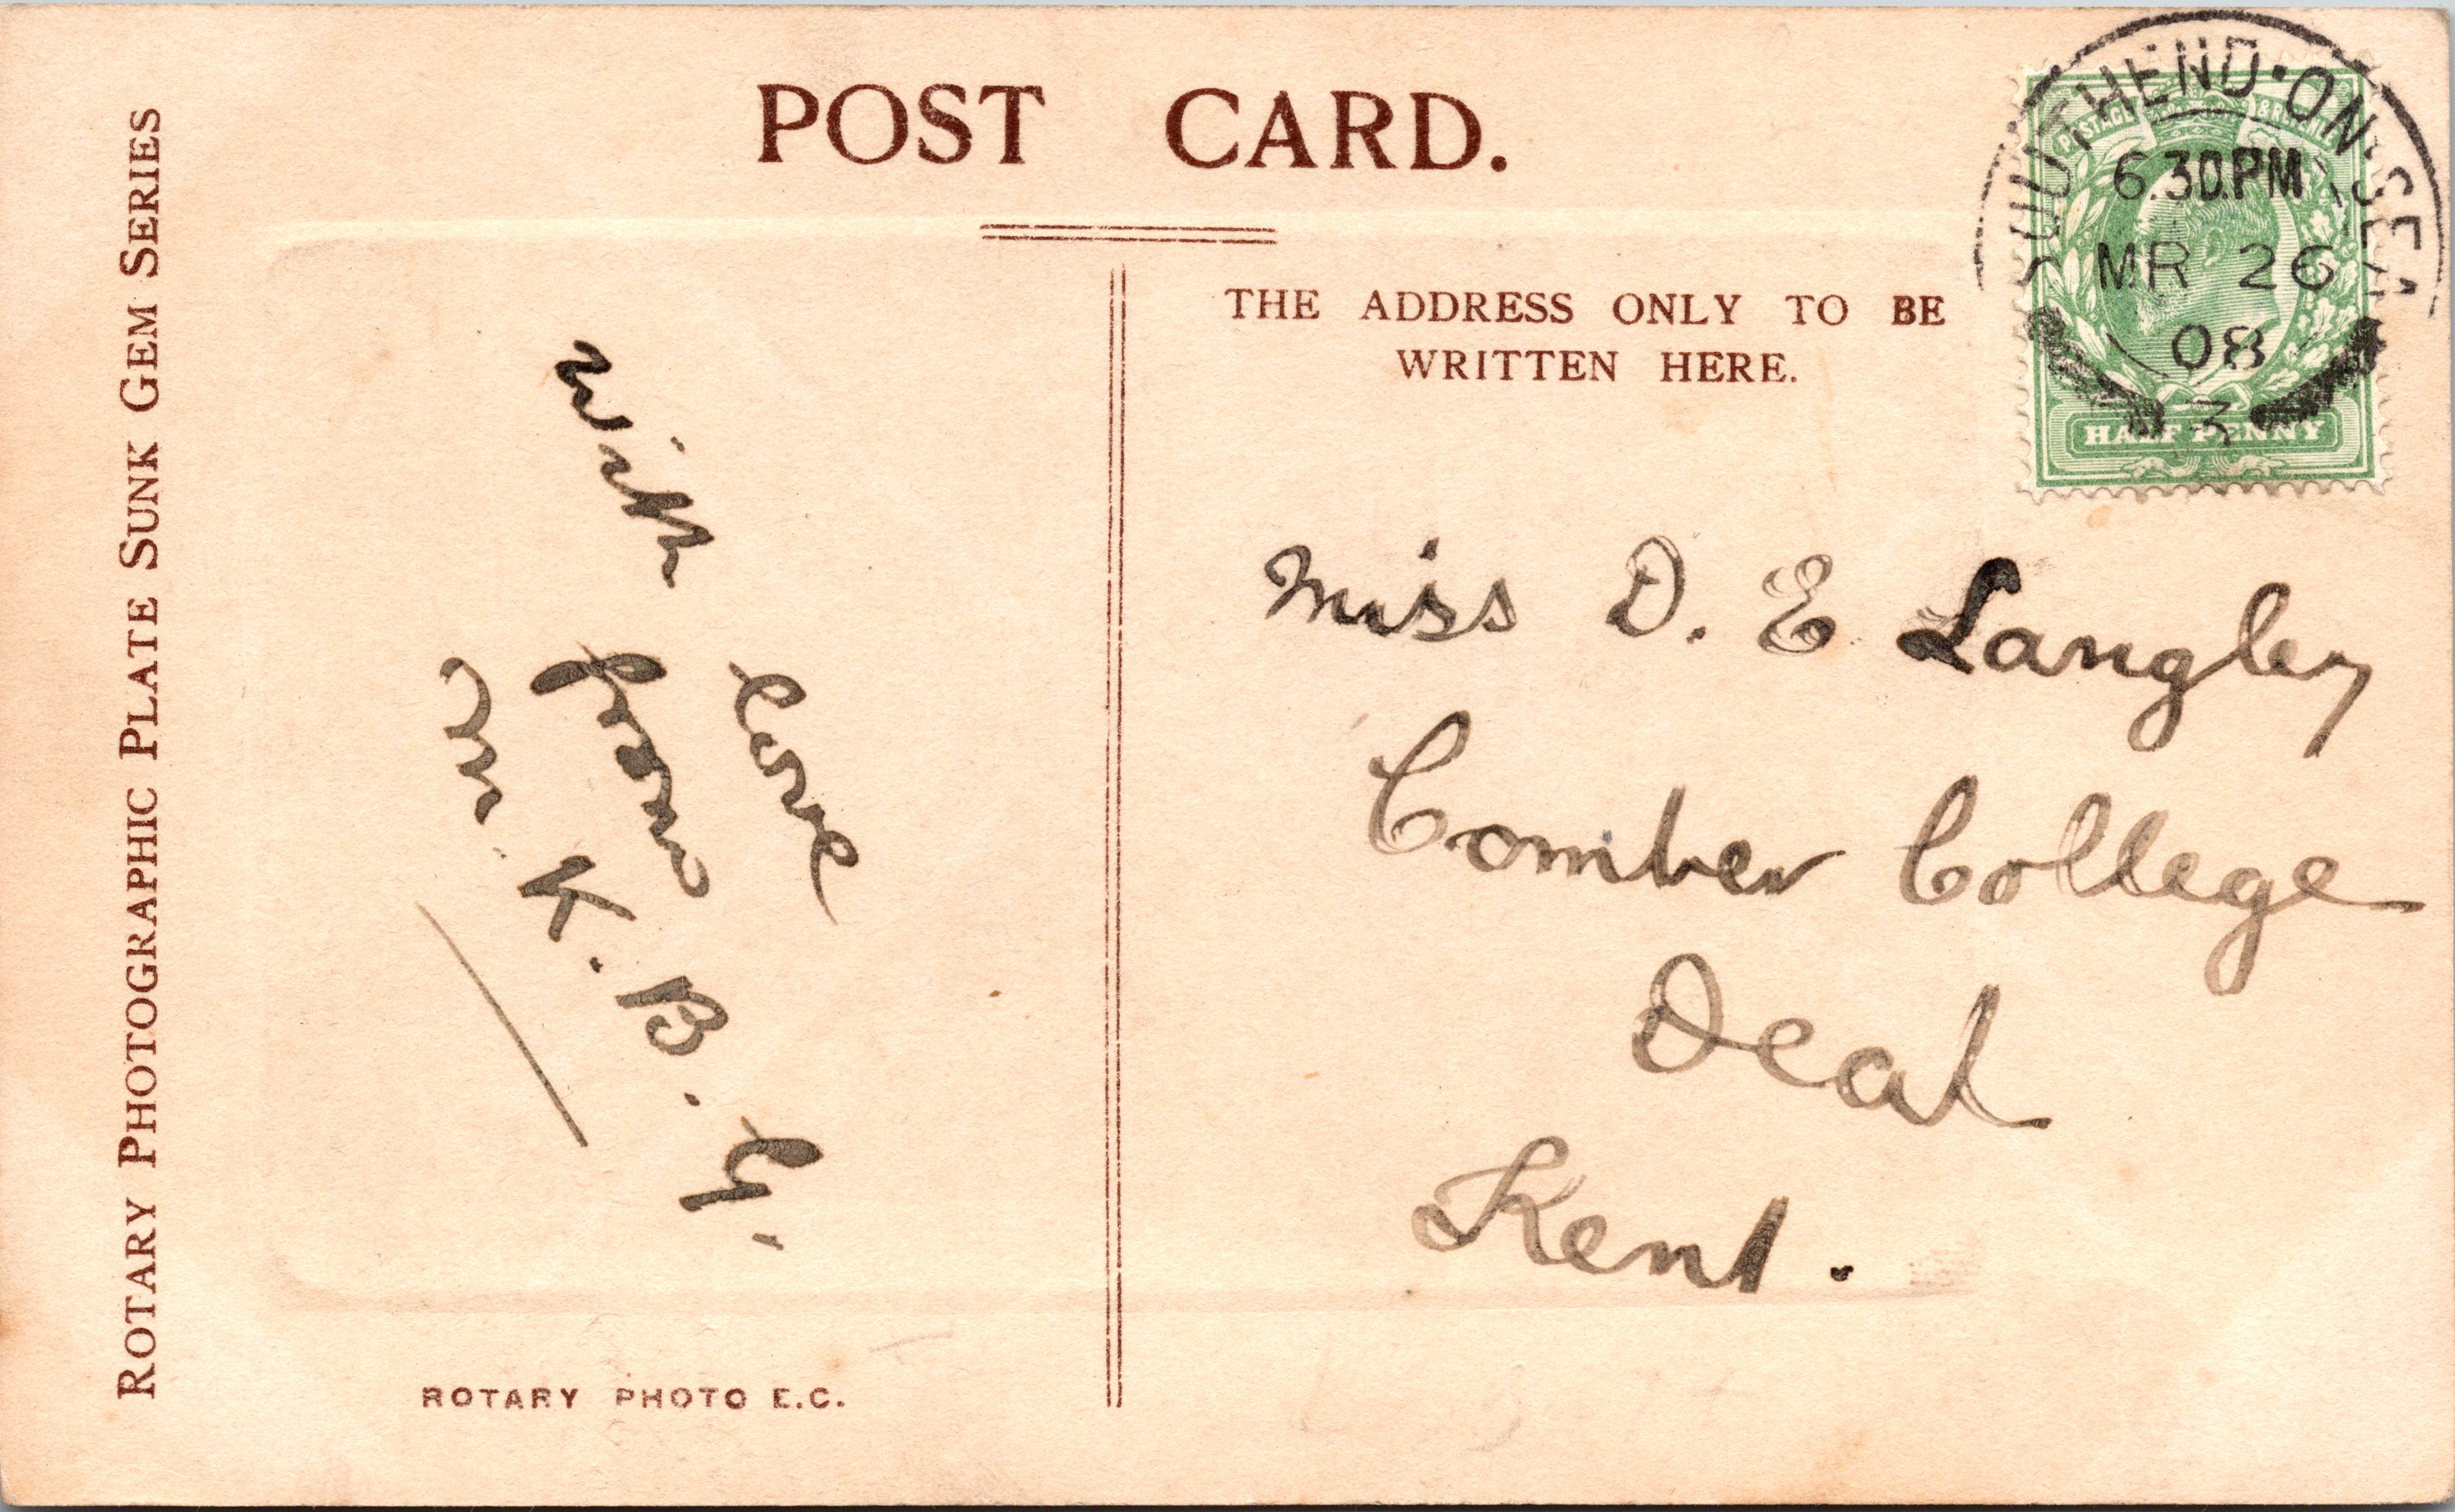 POST CARD.
ROTARY PHOTOGRAPHIC PLATE SUNK GEM SERIES
THE ADDRESS ONLY TO BE
WRITTEN HERE.
SOUTHEND-ON-SEA
6.30PM
MR 26
08
3
POSTAGE & REVENUE
HALF PENNY
with love
from
M. K. B. G.
Miss D. E Langley
Comber College
Deal
Kent.
ROTARY PHOTO E.C.